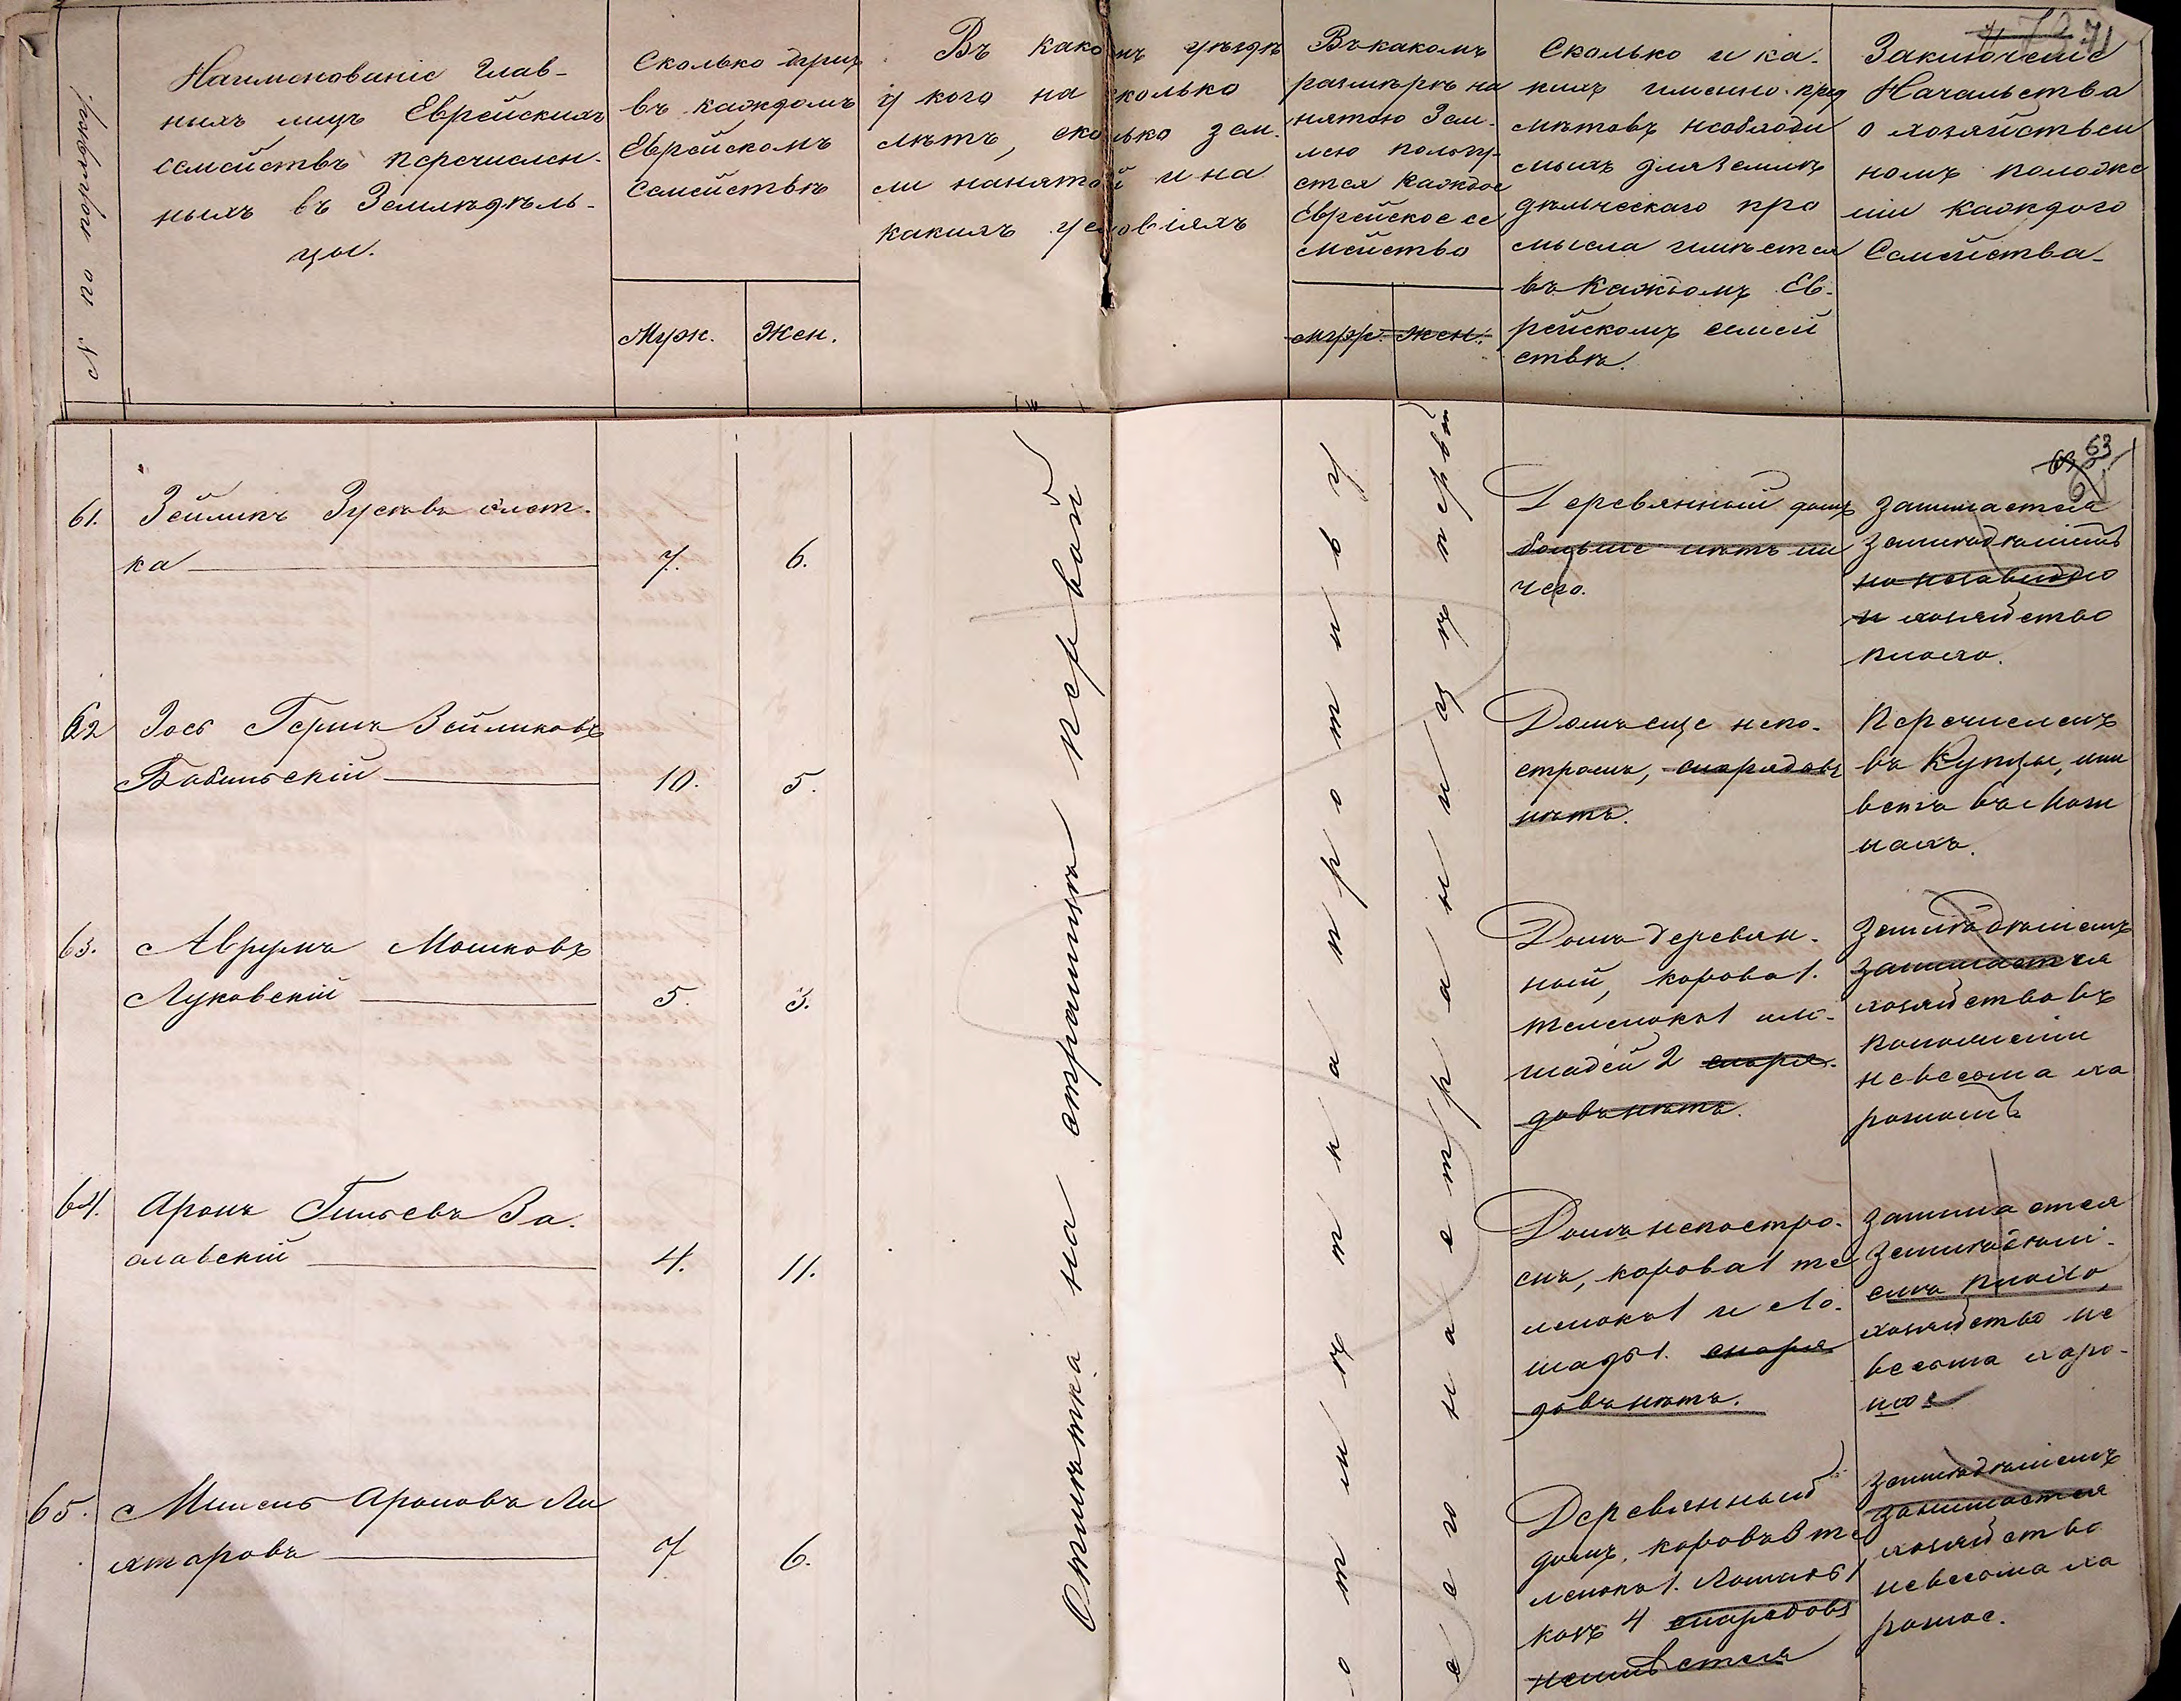 № по порядку
Наименованіе Глав-
ныхъ лицъ Еврейскихъ
семействъ перечислен-
ныхъ въ Земледѣль-
цы.
Сколько душъ
въ каждомъ
Еврейскомъ
семействѣ
Муж. Жен.
Въ какомъ уѣздѣ
у кого на сколько
лѣтъ, сколько зем.
ли нанятой и на
какихъ условіяхъ
Въ какомъ
размѣрѣ на
нятою Зем-
лею пользу-
ется каждое
Еврейское се
мейство
муж. жен.
Сколько и ка-
кихъ именно пред
мѣтовъ необходи
мыхъ для земле
дѣльческаго про
мысла имѣется
въ каждомъ Ев-
рейскомъ семей
ствѣ.
Заключеніе
Начальства
о хозяйствен
номъ положе
ніи каждого
Семейства.
71
63
61. Зейликъ Зусевъ Слот.
ка 7. 6.
Деревянный домъ
больше нѣтъ ни
чего.
занимается
земледѣліемъ
и хозяйство
плохо.
62 Зось Герцъ Зейликовъ
Бобинскій 10. 5.
Домъ еще непо-
строенъ, снарядовъ
нѣтъ.
Перечисленъ
въ Купцы, жи
ветъ въ
63. Аврумъ Мошковъ
Луковскій 5. 3.
Домъ деревян-
ный, корова 1.
теленокъ 1 ло-
шадей 2 снаря-
довъ нѣтъ.
Земледѣліемъ
занимается
хозяйство въ
положеніи
не весьма хо
рошомъ
64. Аронъ Гилевъ За-
славскій 4. 11.
Домъ непостро-
енъ, корова 1 те
ленокъ 1 и ло-
шадь 1. снаря
довъ нѣтъ.
занимается
Земледѣлі-
емъ плохо,
хозяйство не
весьма хоро-
шое
65. Мишель Ароновъ Ли
хтаровъ 7 6.
Деревянный
домъ, коровъ 3 те
ленокъ 1. Лошадь 1
козъ 4 снарядовъ
неимѣется
Земледѣліемъ
занимается
хозяйство
не весьма хо
рошое.
Отмѣтка на страницѣ первой
отмѣтка противу
сего на страницѣ первой